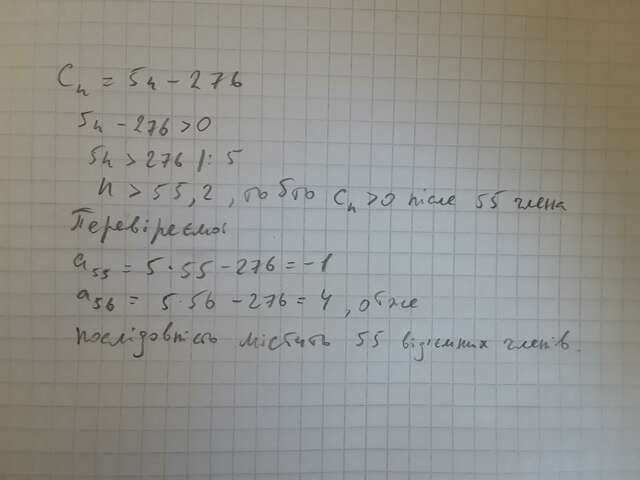 Cn = 5n - 276
5n - 276 > 0
5n > 276 |: 5
n > 55,2, тобто Cn > 0 після 55 члена
Перевіряємо:
a55 = 5·55 - 276 = -1
a56 = 5·56 - 276 = 4, отже
послідовність містить 55 від'ємних членів.